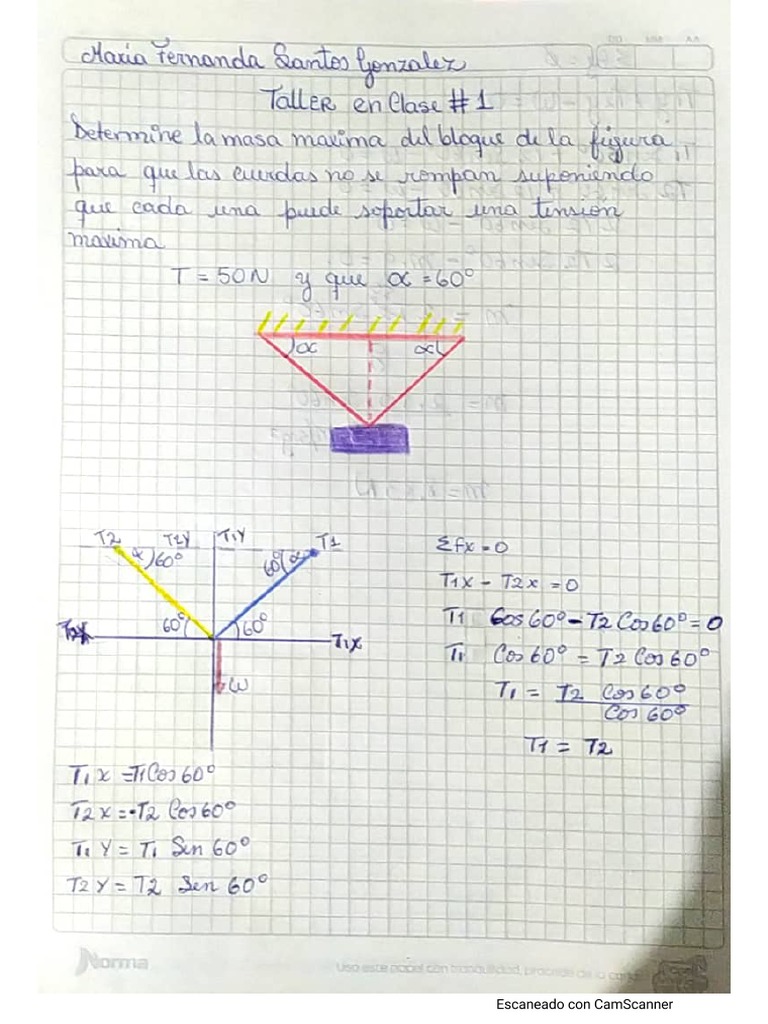 Maria Fernanda Santos Gonzalez
Taller en Clase #1
Determine la masa maxima del bloque de la figura,
para que las cuerdas no se rompan suponiendo
que cada una puede soportar una tensión
maxima
T = 50N y que α = 60°
α α
T2 T2Y T1Y T1
α 60° 60° α
60° 60°
T1X
W
T1X = T1 Cos 60°
T2X = -T2 Cos 60°
T1Y = T1 Sen 60°
T2Y = T2 Sen 60°
Σfx = 0
T1X - T2X = 0
T1 Cos 60° - T2 Cos 60° = 0
T1 Cos 60° = T2 Cos 60°
T1 = T2 Cos 60°
Cos 60°
T1 = T2
Norma
Usa este papel con tranquilidad, procede de la
Escaneado con CamScanner